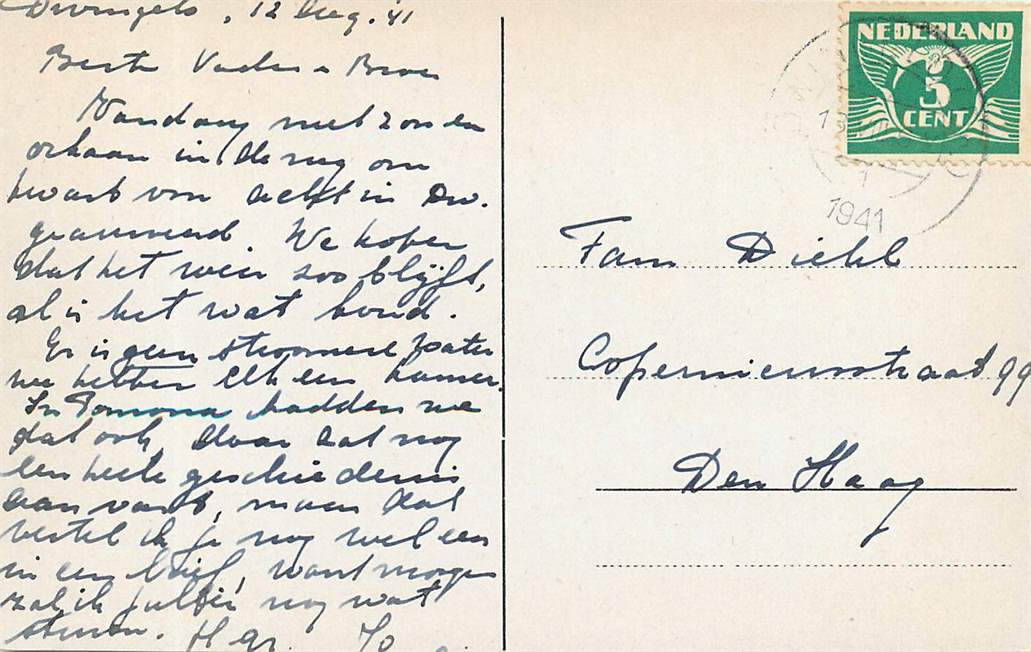 Dwingelo, 12 Aug. 41
Beste Vader en Broer
Vandaag met zon en
orkaan in de rug om
kwart voor acht in Dw.
gearriveerd. We hopen
dat het weer zoo blijft,
al is het wat koud.
Er is geen stroomend water
we hebben elk een kamer.
In Pomona hadden we
dat ook, daar zat nog
een heele geschiedenis
aan vast, maar dat
vertel ik je nog wel een
in een brief, want morgen
zal ik jullie nog wat
sturen. H gr. Jo
NEDERLAND
5
CENT
1941
Fam Diehl
Copernicusstraat 99
Den Haag